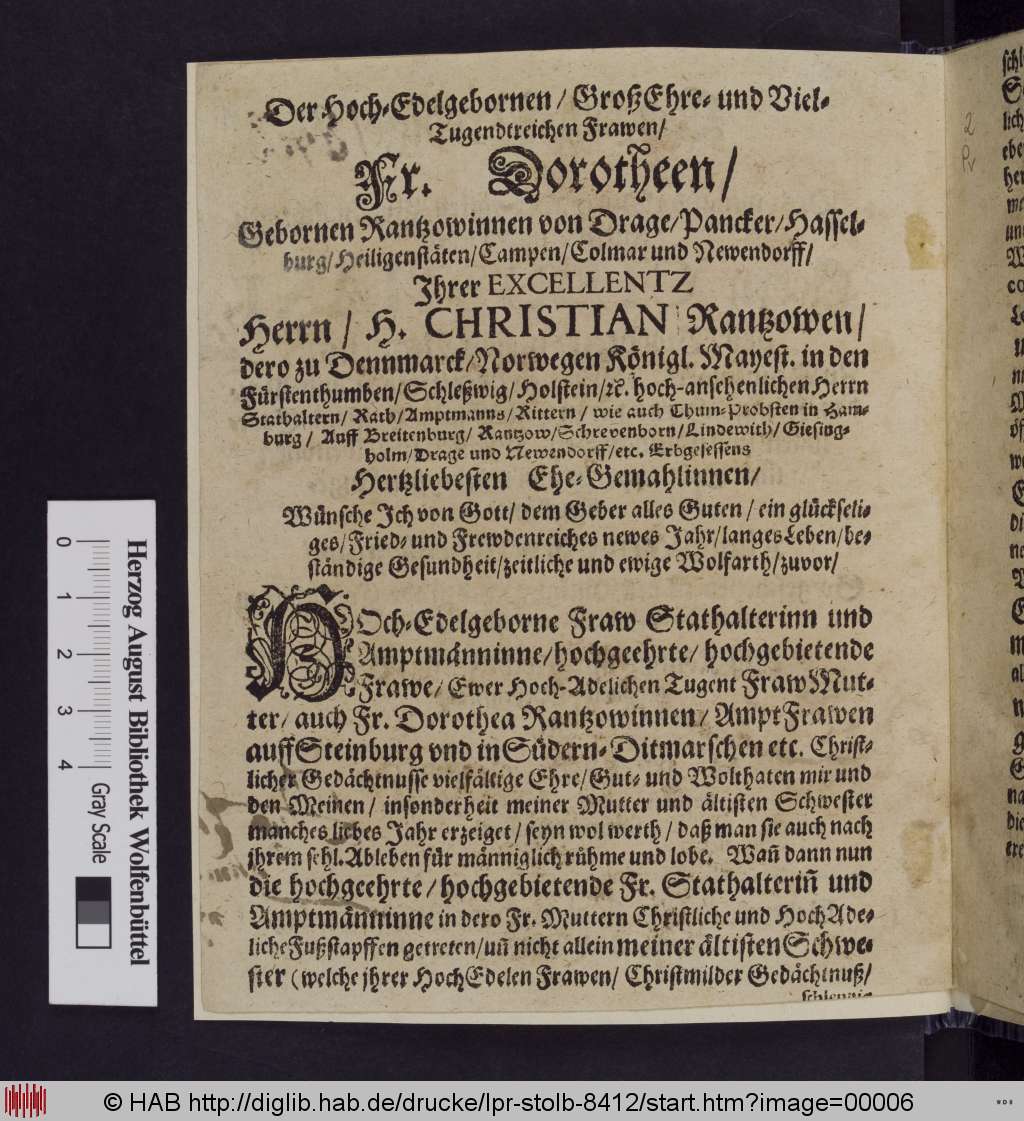 Der Hoch-Edelgebornen / GroßEhre- und Viel-
Tugendtreichen Frawen/
Fr. Dorotheen/
Gebornen Rantzowinnen von Drage/Pancker/Hassel-
burg/Heiligenstäten/Campen/Colmar und Newendorff/
Ihrer EXCELLENTZ
Herrn / H. CHRISTIAN Rantzowen/
dero zu Dennmarck/Norwegen Königl. Mayest. in den
Fürstenthumben/Schleßwig/Holstein/ꝛc. hoch-ansehenlichen Herrn
Stathaltern/ Rath/Amptmanns/Rittern / wie auch Thum-Probsten in Ham-
burg / Auff Breitenburg/ Rantzow/Schrevenborn/Lindewith/Giesing-
holm/Drage und Newendorff/etc. Erbgesessens
Hertzliebesten Ehe-Gemahlinnen/
Wünsche Ich von Gott/ dem Geber alles Guten / ein glückseli-
ges/Fried- und Frewdenreiches newes Jahr/langes Leben/be-
ständige Gesundheit/zeitliche und ewige Wolfarth/zuvor/
HOch-Edelgeborne Fraw Stathalterinn und
Amptmänninne/hochgeehrte/ hochgebietende
Frawe/ Ewer Hoch-Adelichen Tugent Fraw Mut-
ter/ auch Fr. Dorothea Rantzowinnen/ AmptFrawen
auff Steinburg vnd in Südern-Ditmarschen etc. Christ-
licher Gedächtnusse vielfältige Ehre/Gut- und Wolthaten mir und
den Meinen / insonderheit meiner Mutter und ältisten Schwester
manches liebes Jahr erzeiget/ seyn wol werth / daß man sie auch nach
jhrem sehl. Ableben für männiglich rühme und lobe. Wañ dann nun
die hochgeehrte/hochgebietende Fr. Stathalteriñ und
Amptmänninne in dero Fr. Muttern Christliche und HochAde-
liche Fußstapffen getreten/uñ nicht allein meiner ältisten Schwe-
ster (welche jhrer HochEdelen Frawen/ Christmilder Gedächtnuß/
2
Herzog August Bibliothek Wolfenbüttel
0 1 2 3 4
Gray Scale
© HAB http://diglib.hab.de/drucke/lpr-stolb-8412/start.htm?image=00006